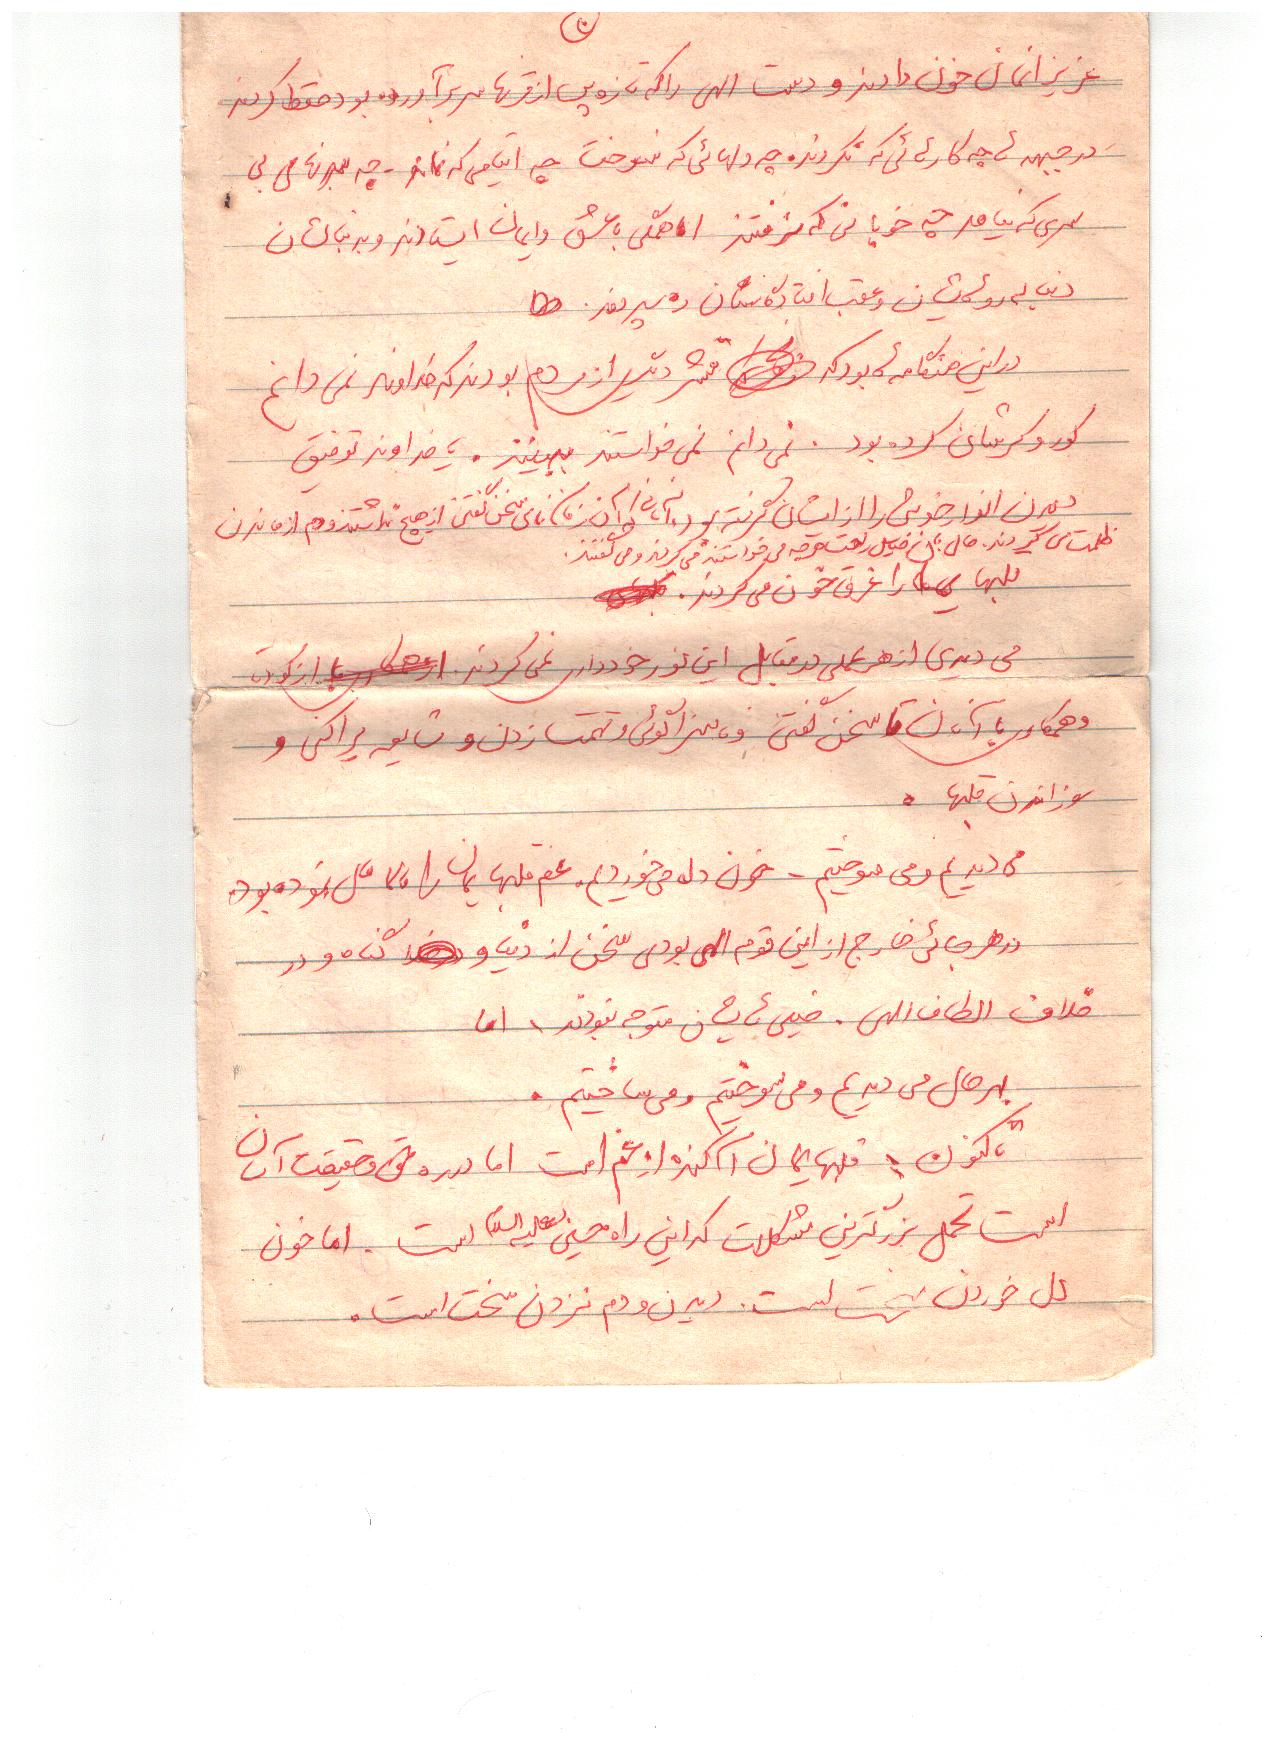 عزیزانمان خون دادند و دست الهی را که تازه پس از قرنها سر برآورده بود حفظ کردند
در جبهه ها چه کارهائی که نکردند. چه دلهائی که نسوخت چه ایتامی که نماند - چه بدنهای بی
سری که نیامد چه خوبانی که نرفتند اما همگی با عشق و ایمان ایستادند و بدنبالشان
دنباله روهایشان و عقب افتادگانشان ره سپردند.
در این هنگامه ها بود که قشر دیگری از مردم بودند که خداوند نمی دانم
کور و کرشان کرده بود. نمی دانم نمی خواستند ببینند. یا خداوند توفیق
دیدن انوار خویش را از ایشان گرفته بود. آنان از سخن گفتن از هیچ نداشتند و دم از ماندن
ظلمت می کردند. حال با خیال راحت هر چه می خواستند می کردند و می گفتند.
قلبهای ما را غرق خون می کردند.
می دیدی از هر عملی در مقابل این نور خودداری نمی کردند. از کودتا
و همکاری با آنان تا سخن گفتن و ناسزاگوئی و تهمت زدن و شایعه پراکنی و
سوزاندن قلبها.
می دیدیم و می سوختیم - خون دل می خوردیم. غم قلبهایمان را مالامال نموده بود
در هر جائی خارج از این قوم الهی بودی سخن از دنیا و گناه و در
خلاف الطاف الهی. خیلی هایشان متوجه نبودند، اما
بهر حال می دیدیم و می سوختیم و می ساختیم.
تاکنون، قلبهایمان آکنده از غم است اما در ره حق و حقیقت آسان
است تحمل بزرگترین مشکلات که این راه حسین علیه السلام است. اما خون
دل خوردن سخت است. دیدن و دم نزدن سخت است.